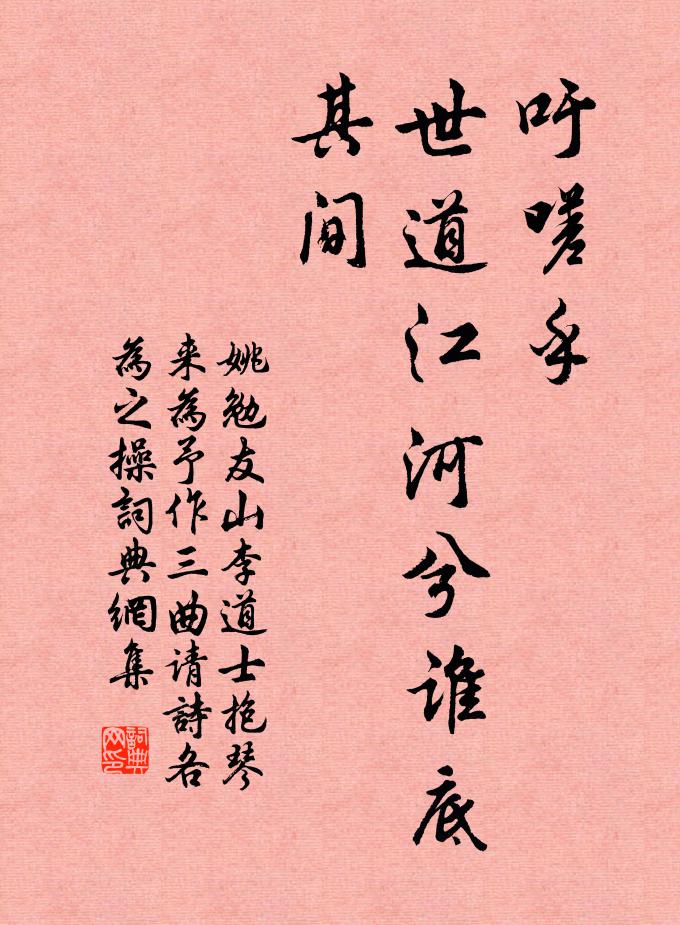 吁嗟乎
世道江河兮谁底
其间
姚勉友山李道士抱琴
来為予作三曲请詩各
為之操詞典網集
詞典网印